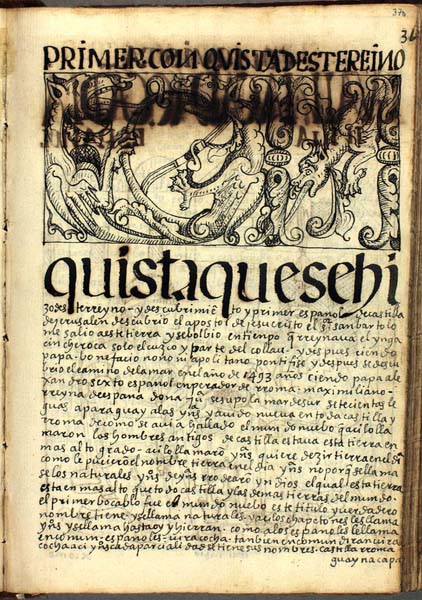 370
PRIMER CONQVISTA DESTE REINO
quista que se hi
zo des te rreyno y descubrimiẽto y primer español de castilla
de jrusalen descubrio el apostol de jesucristo el sr san bartolo
me salio a este tierra y se bolbio en tienpo que rreynaua el ynga
cinche roca solo el cuzco y parte del collau y despues ciendo
papa bonefacio nono napolitano pontifise y despues se descu
brio el camino de la mar en el año de 1493 años ciendo papa ale
xandro sexto español enperador de rroma maximiliano
rreyna de españa dona juana se supo la mar de sur setecientas le
guas a paraguay a las yndias y auido nueua en toda castilla y
rroma de como se auia hallado el mundo nuebo que aci lo lla
maron los hombres antigos de castilla estaua esta tierra en
mas alto grado aci lo llamaro yndias quiere dezir tierra en el dia
como le pucieron el nombre tierra en el dia yndias no porque se llama
se los naturales yndios de yndias rrodearon yndios el qual esta tierra
esta en mas alto que todo castilla y las demas tierras del mundo
el primer bocablo fue el mundo nuebo este titulo y uerdadero
nombres tiene y se llama naturales y a los chapetones les llama
yndias y se llama hasta oy y hierran como a los españoles le llama
en comun españoles uiracocha tanbien en comun diran uira
cocha aci yndias cada parcialidad se tiene sus nombres castilla rroma
guaynacapa